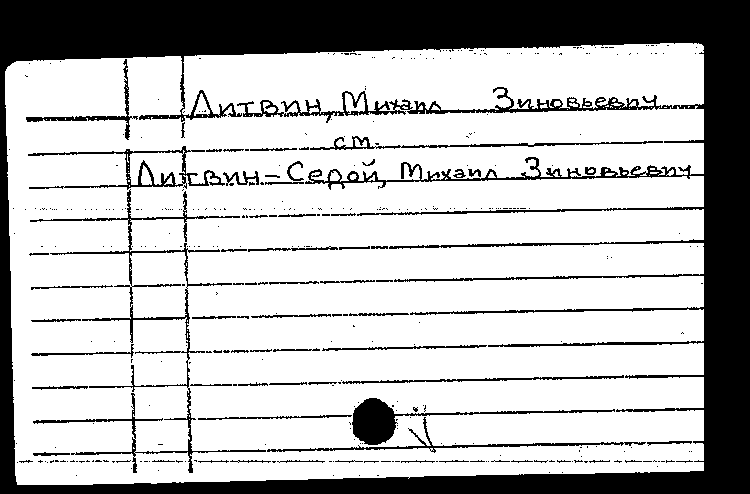 Литвин, Михаил Зиновьевич
ст.
Литвин-Седой, Михаил Зиновьевич